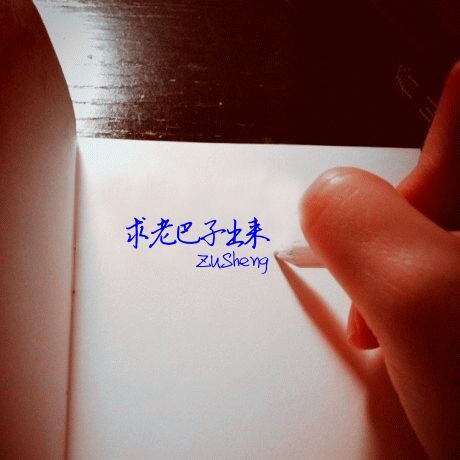 求老巴子出来
ZuSheng